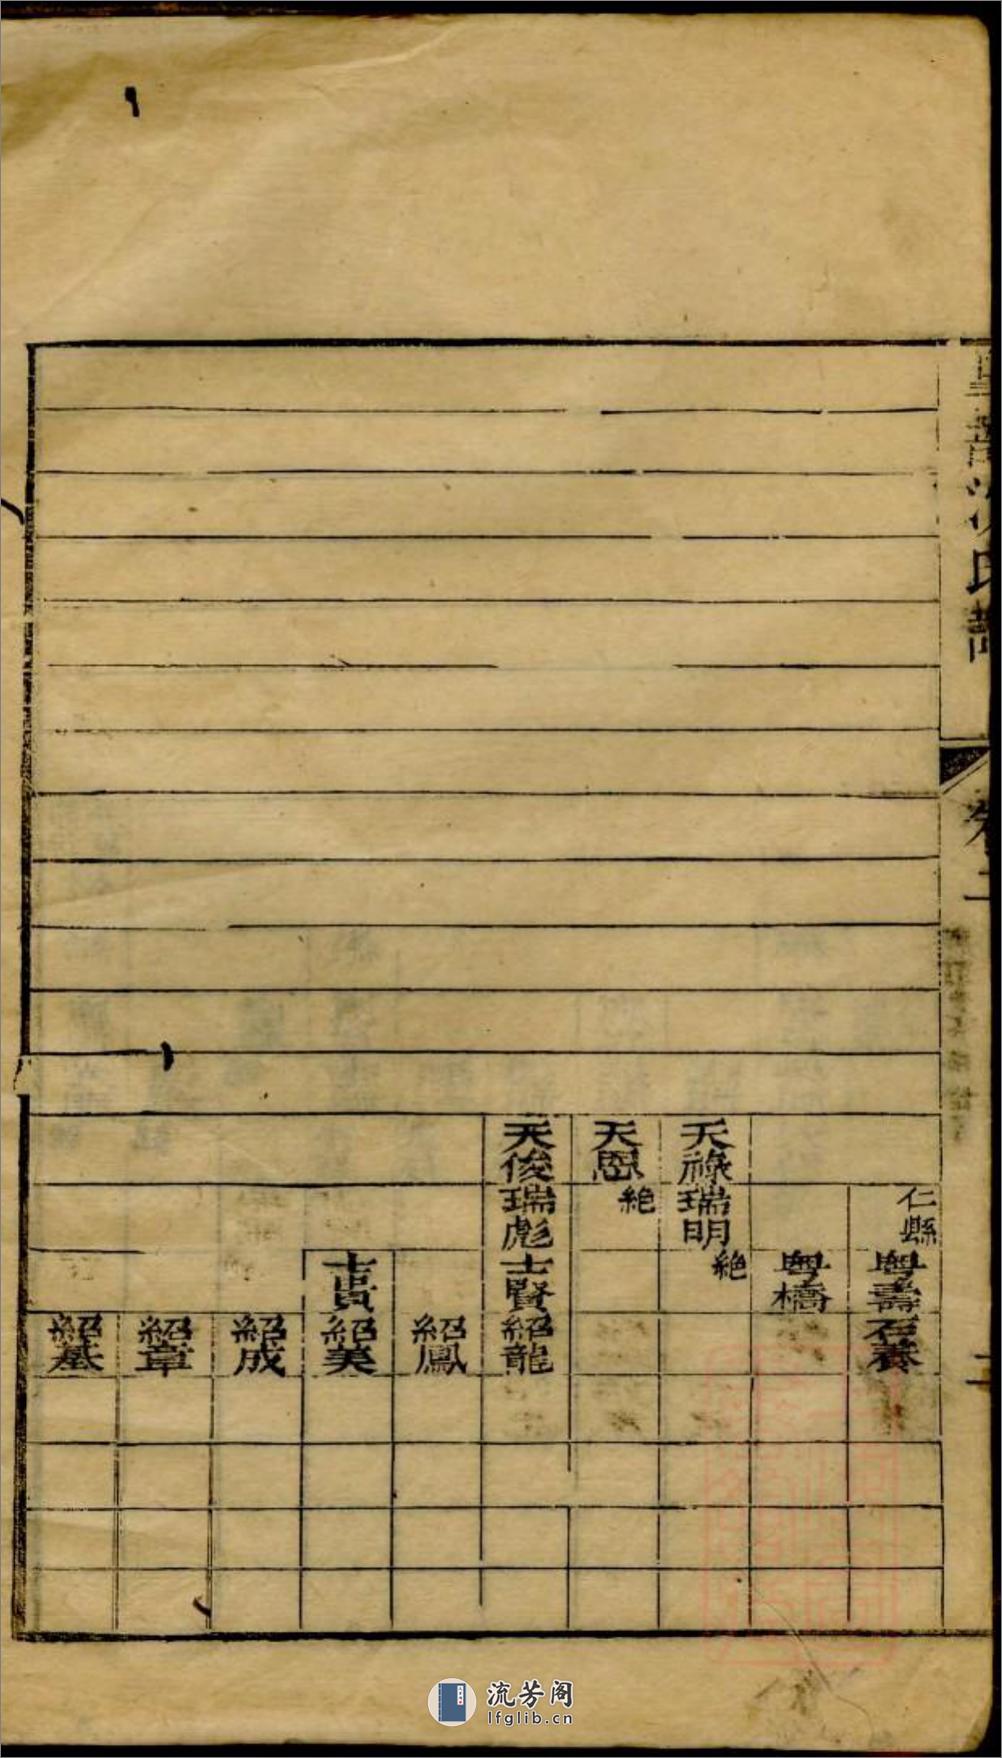 氏譜
卷二
二
仁縣
粤壽石養
粤橋
天祿瑞明絶
天恩絶
天俊瑞彪士賢紹龍
紹鳳
士貴紹美
紹成
紹章
紹基
流芳阁
lfglib.cn